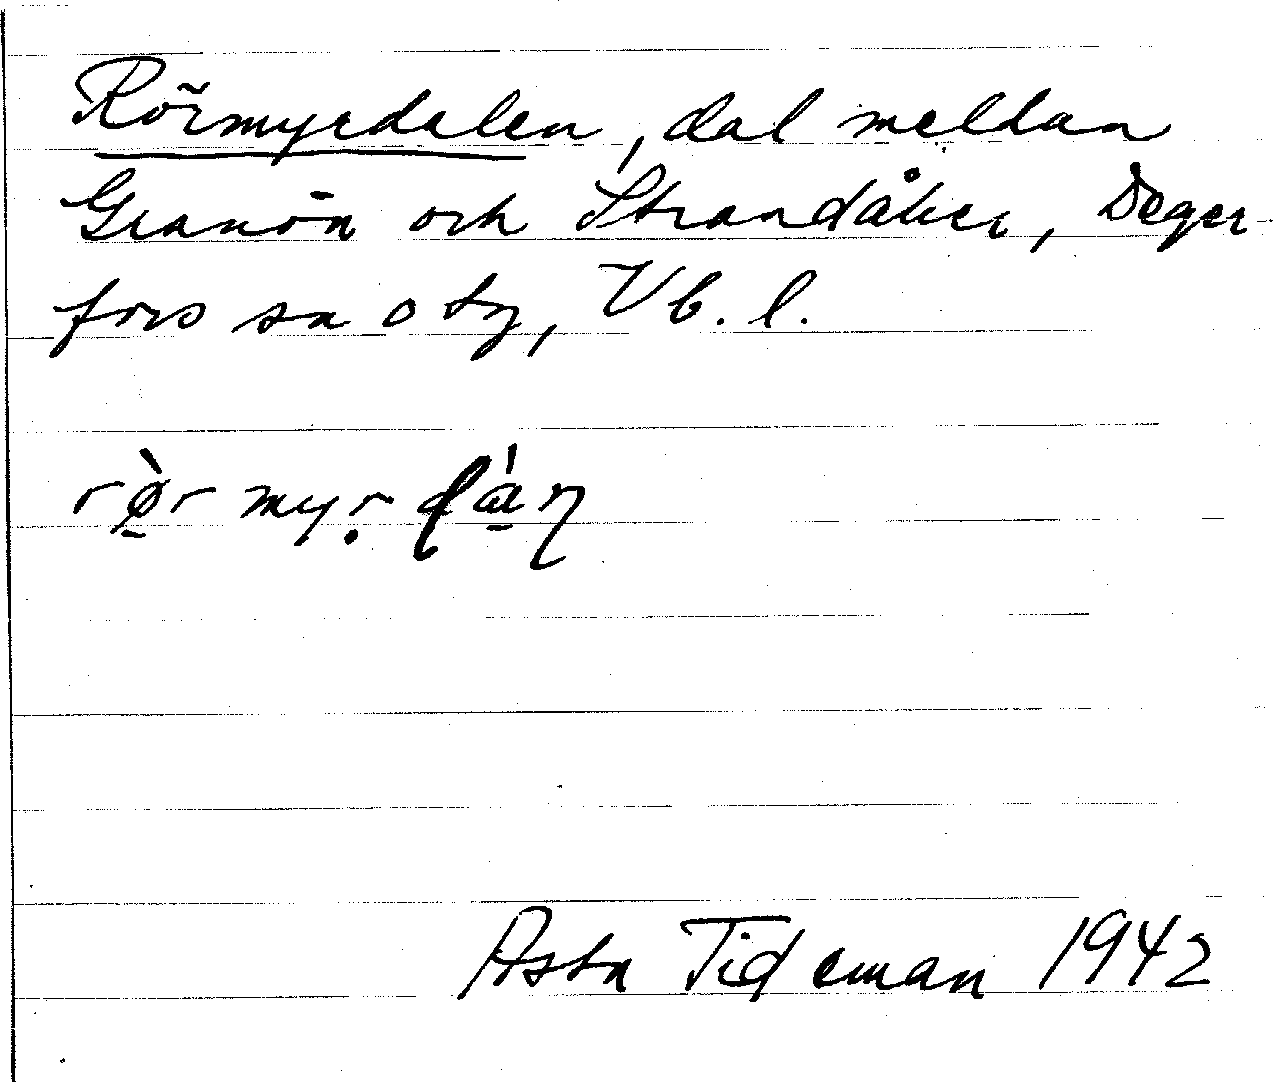 Rörmyrdalen, dal mellan
Granön och Strandåker, Deger-
fors sn o tg, Vb. l.
rø̀r myr dàn
Asta Tideman 1942